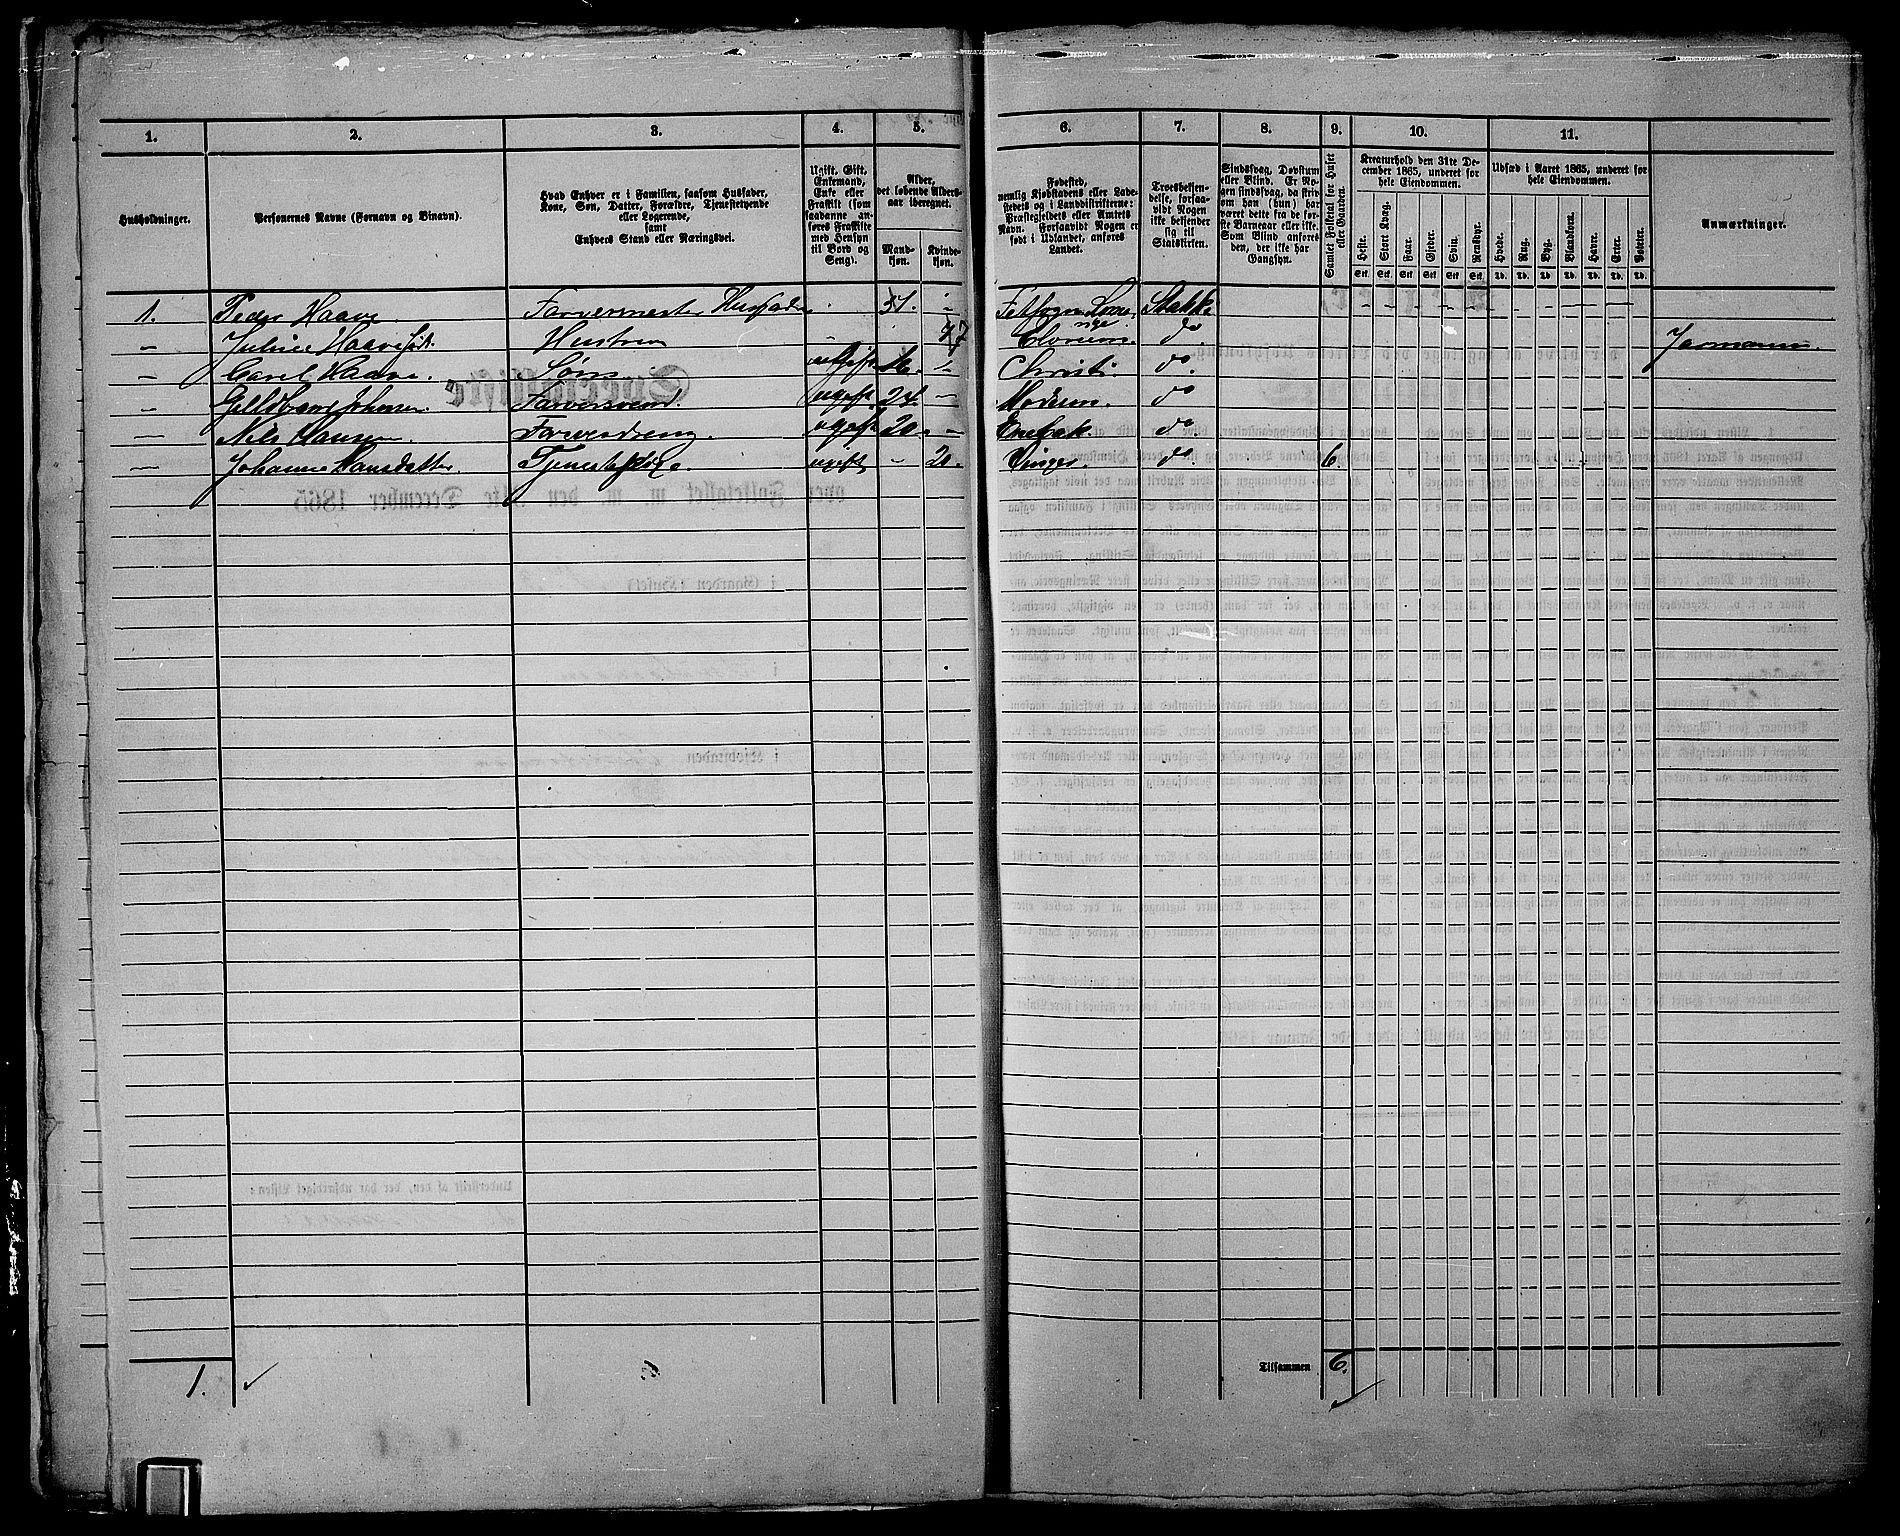 1. 2. 3. 4. 5. 6. 7. 8. 9. 10. 11.
Husholdninger.
Personernes Navne (Fornavn og Binavn).
Hvad Enhver er i Familien, saasom Husfader,
Kone, Søn, Datter, Forældre, Tjenestetyende
eller Logerende,
samt
Enhvers Stand eller Næringsvei.
Ugift, Gift,
Enkemand,
Enke eller
Fraskilt (som
saadanne an-
føres Fraskilte
med Hensyn
til Bord og
Seng).
Alder,
det løbende Alders-
aar iberegnet.
Mand-
kjøn.
Kvinde-
kjøn.
Fødested,
nemlig Kjøbstadens eller Lade-
stedets og i Landdistrikterne:
Præstegjeldets eller Amtets
Navn. Forsaavidt Nogen er
født i Udlandet, anføres
Landet.
Troesbekjen-
delse, forsaa-
vidt Nogen
ikke bekjender
sig til
Statskirken.
Sindssvag, Døvstum
eller Blind. Er No-
gen sindssvag, da skriv
om han (hun) har
været dette fra de før-
ste Barneaar eller ikke.
Som Blind anføres
den, der ikke har
Gangsyn.
Samlet Folketal for Huset
eller Gaarden.
Kreaturhold den 31te De-
cember 1865, underet for
hele Eiendommen.
Heste.
Stort Kvæg.
Faar.
Gjeder.
Svin.
Rensdyr.
Udsæd i Aaret 1865, underet for
hele Eiendommen.
Hvede.
Rug.
Byg.
Blandkorn.
Havre.
Erter.
Poteter.
Anmærkninger.
Stk. Stk. Stk. Stk. Stk. Stk. Td. Td. Td. Td. Td. Td. Td.
1. Peder Haave Farvermester Husfader 51. –
– Julius Haave Hustru 47 do
– Carel Haave. Søn ugift 16. – Christi. do
– Johnsen Farversvend. ugift – Modum. do
– Nils Hansen Farverdreng. ugift 20. – Enebak. do
– Johanne Hansdatter Tjenestepige ugift – 20. Vinger. do 6.
1.
Tilsammen 6.